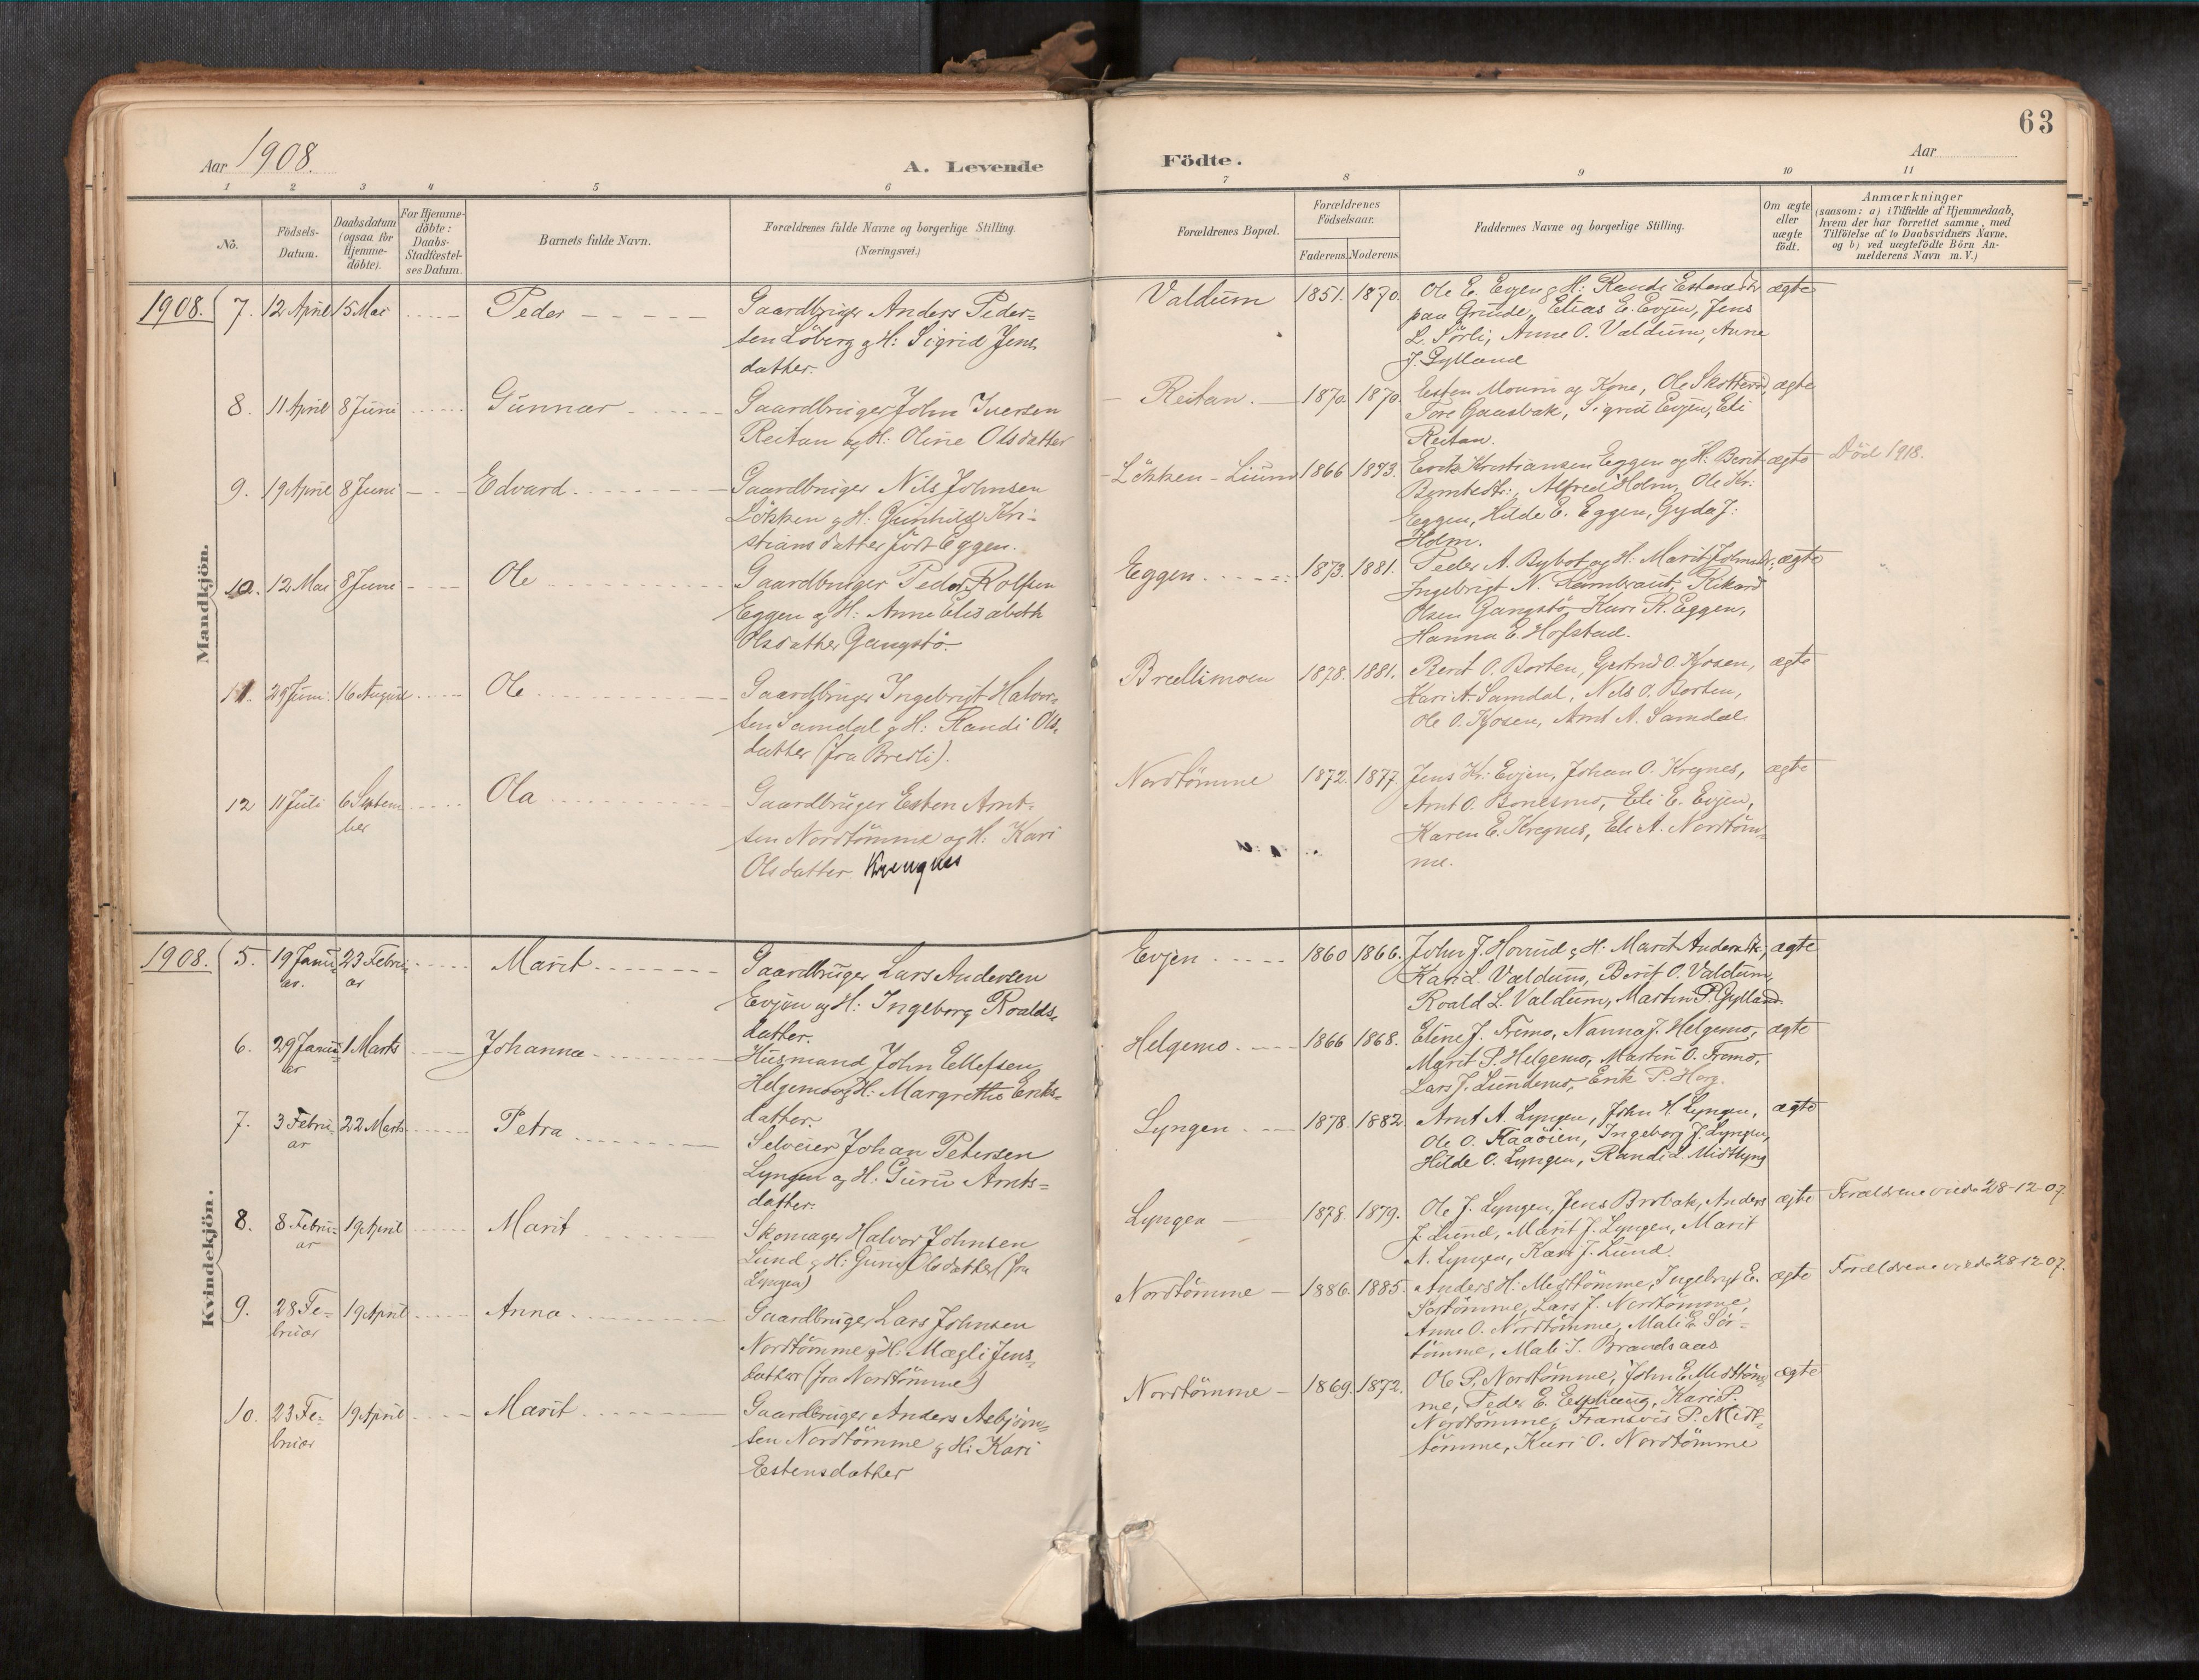 63
Aar 1908.
A. Levende
Födte.
Aar
1 2 3 4 5 6 7 8 9 10 11
No.
Födsels-Datum.
Daabsdatum (ogsaa for Hjemme-döbte).
For Hjemme-döbte: Daabs-Stadfæstel-ses Datum.
Barnets fulde Navn.
Forældrenes fulde Navne og borgerlige Stilling.
(Næringsvei.)
Forældrenes Bopæl.
Forældrenes Födselsaar.
Faderens. Moderens.
Faddernes Navne og borgerlige Stilling.
Om ægte eller uægte födt.
Anmærkninger
(saasom: a) i Tilfælde af Hjemmedaab,
hvem der har forrettet samme, med
Tilföielse af to Daabsvidners Navne,
og b) ved uægtefödte Börn An-
melderens Navn m. V.)
Mandkjön.
1908. 7. 12 April 15 Mai Peder
Gaardbruger Anders Peder-
sen Löberg og H: Sigrid Jens
datter.
Valdum 1851. 1870.
Ole E. Evjen og H: Randi Estensdtr
paa Grinde, Elias E. Evjen, Jens
L. Sörli, Anne O. Valdum, Anne
J. Gylland
ægte
8. 11 April 8 Juni Gunnar
Gaardbruger John Iversen
Reitan og H: Oline Olsdatter
Reitan. 1870. 1870.
Esten Moum og Kone, Ole
Tore Gaasbak, Sigrid Evjen, Eli
Reitan.
ægte
9. 19 April 8 Juni Edvard
Gaardbruger Nils Johnsen
Lökken og H: Gunhild Kri-
stiansdatter född Eggen.
Lökken - Lium 1866 1873.
Erik Kristiansen Eggen og H: Berit
Alfred Holm, Ole Kr:
Eggen, Hilde E. Eggen, Gyda J:
Holm.
ægte
Död 1918.
10. 12 Mai 8 Juni Ole
Gaardbruger Peder Rolfsen
Eggen og H: Anne Elisabeth
Olsdatter Gangstö.
Eggen 1873. 1881.
Peder A. Bybot og H: Marit Johnsdtr,
Ingebrigt N. Rikard
Olsen Gangstö, Kari R. Eggen,
Hanna E. Hofstad.
ægte
11. 29 Juni 16 August Ole
Gaardbruger Ingebrigt Halvor-
sen Samdal og H: Randi Ols-
datter (fra Bredli).
Bredlimoen 1878. 1881.
Berit O. Borten, Gjertrud O. Kjosen,
Kari A. Samdal, Nils O. Borten,
Ole O. Kjosen, Arnt A. Samdal
ægte
12 11 Juli 6 Septem-
ber
Ola
Gaardbruger Esten Arnt-
sen Nordtömme og H: Kari
Olsdatter Krengnes
Nordtömme 1872. 1877.
Jens Kr: Evjen, Johan O. Kregnes,
Arnt O. Bonesmo, Eli E. Evjen,
Karen E. Kregnes, Eli A. Nordtöm-
me.
ægte
Kvindekjön.
1908. 5. 19 Janu-
ar. 23 Febru-
ar
Marit
Gaardbruger Lars Andersen
Evjen og H: Ingeborg Roalds-
datter.
Evjen 1860 1866.
John J. Hovrud og H: Marit Andersdtr,
Kari L. Valdum, Berit O. Valdum,
Roald L. Valdum, Martin P. Gylland
ægte
6. 29 Janu-
ar 1 Marts Johanna
Husmand John Ellefsen
Helgemo og H: Margrethe Eriks-
datter.
Helgemo. 1866 1868.
Eline J. Fremo, Nanna J. Helgemo,
Marit P. Helgemo, Martin O. Fremo,
Lars J. Lundemo, Erik P. Horg.
ægte
7. 3 Febru-
ar 22 Marts Petra
Selveier Johan Petersen
Lyngen og H: Guru Arnts-
datter.
Lyngen. 1878 1882
Arnt A. Lyngen, John H. Lyngen,
Ole O. Ingeborg J. Lyngen,
Hilde O. Lyngen, Randi L. Midtlyng
ægte
8. 8 Febru-
ar 19 April Marit
Skomager Halvor Johnsen
Lund og H: Guru Olsdatter (fra
Lyngen)
Lyngen 1878. 1879.
Ole J. Lyngen, Jens Brobak, Anders
J. Lund, Marit J. Lyngen, Marit
A. Lyngen, Kari J. Lund.
ægte
Forældrene viede 28-12-07.
9. 28 Fe-
bruar 19 April Anna
Gaardbruger Lars Johnsen
Nordtömme og H: Magli Jens-
datter (fra Nordtömme)
Nordtömme 1886. 1885.
Anders H: Midttömme, Ingebrigt E.
Sörtömme, Lars J. Nordtömme,
Anne O. Nordtömme, Mali E. Sör-
tömme, Mali J. Brandsaas
ægte
Forældrene viede 28-12 07.
10. 23 Fe-
bruar 19 April Marit
Gaardbruger Anders Asbjörn-
sen Nordtömme og H: Kari
Estensdatter
Nordtömme 1869. 1872.
Ole P. Nordtömme, John E. Midttöm-
me, Peder E. Esphaug, Kari P.
Nordtömme, P. Midt-
tömme, Kari O. Nordtömme
ægte